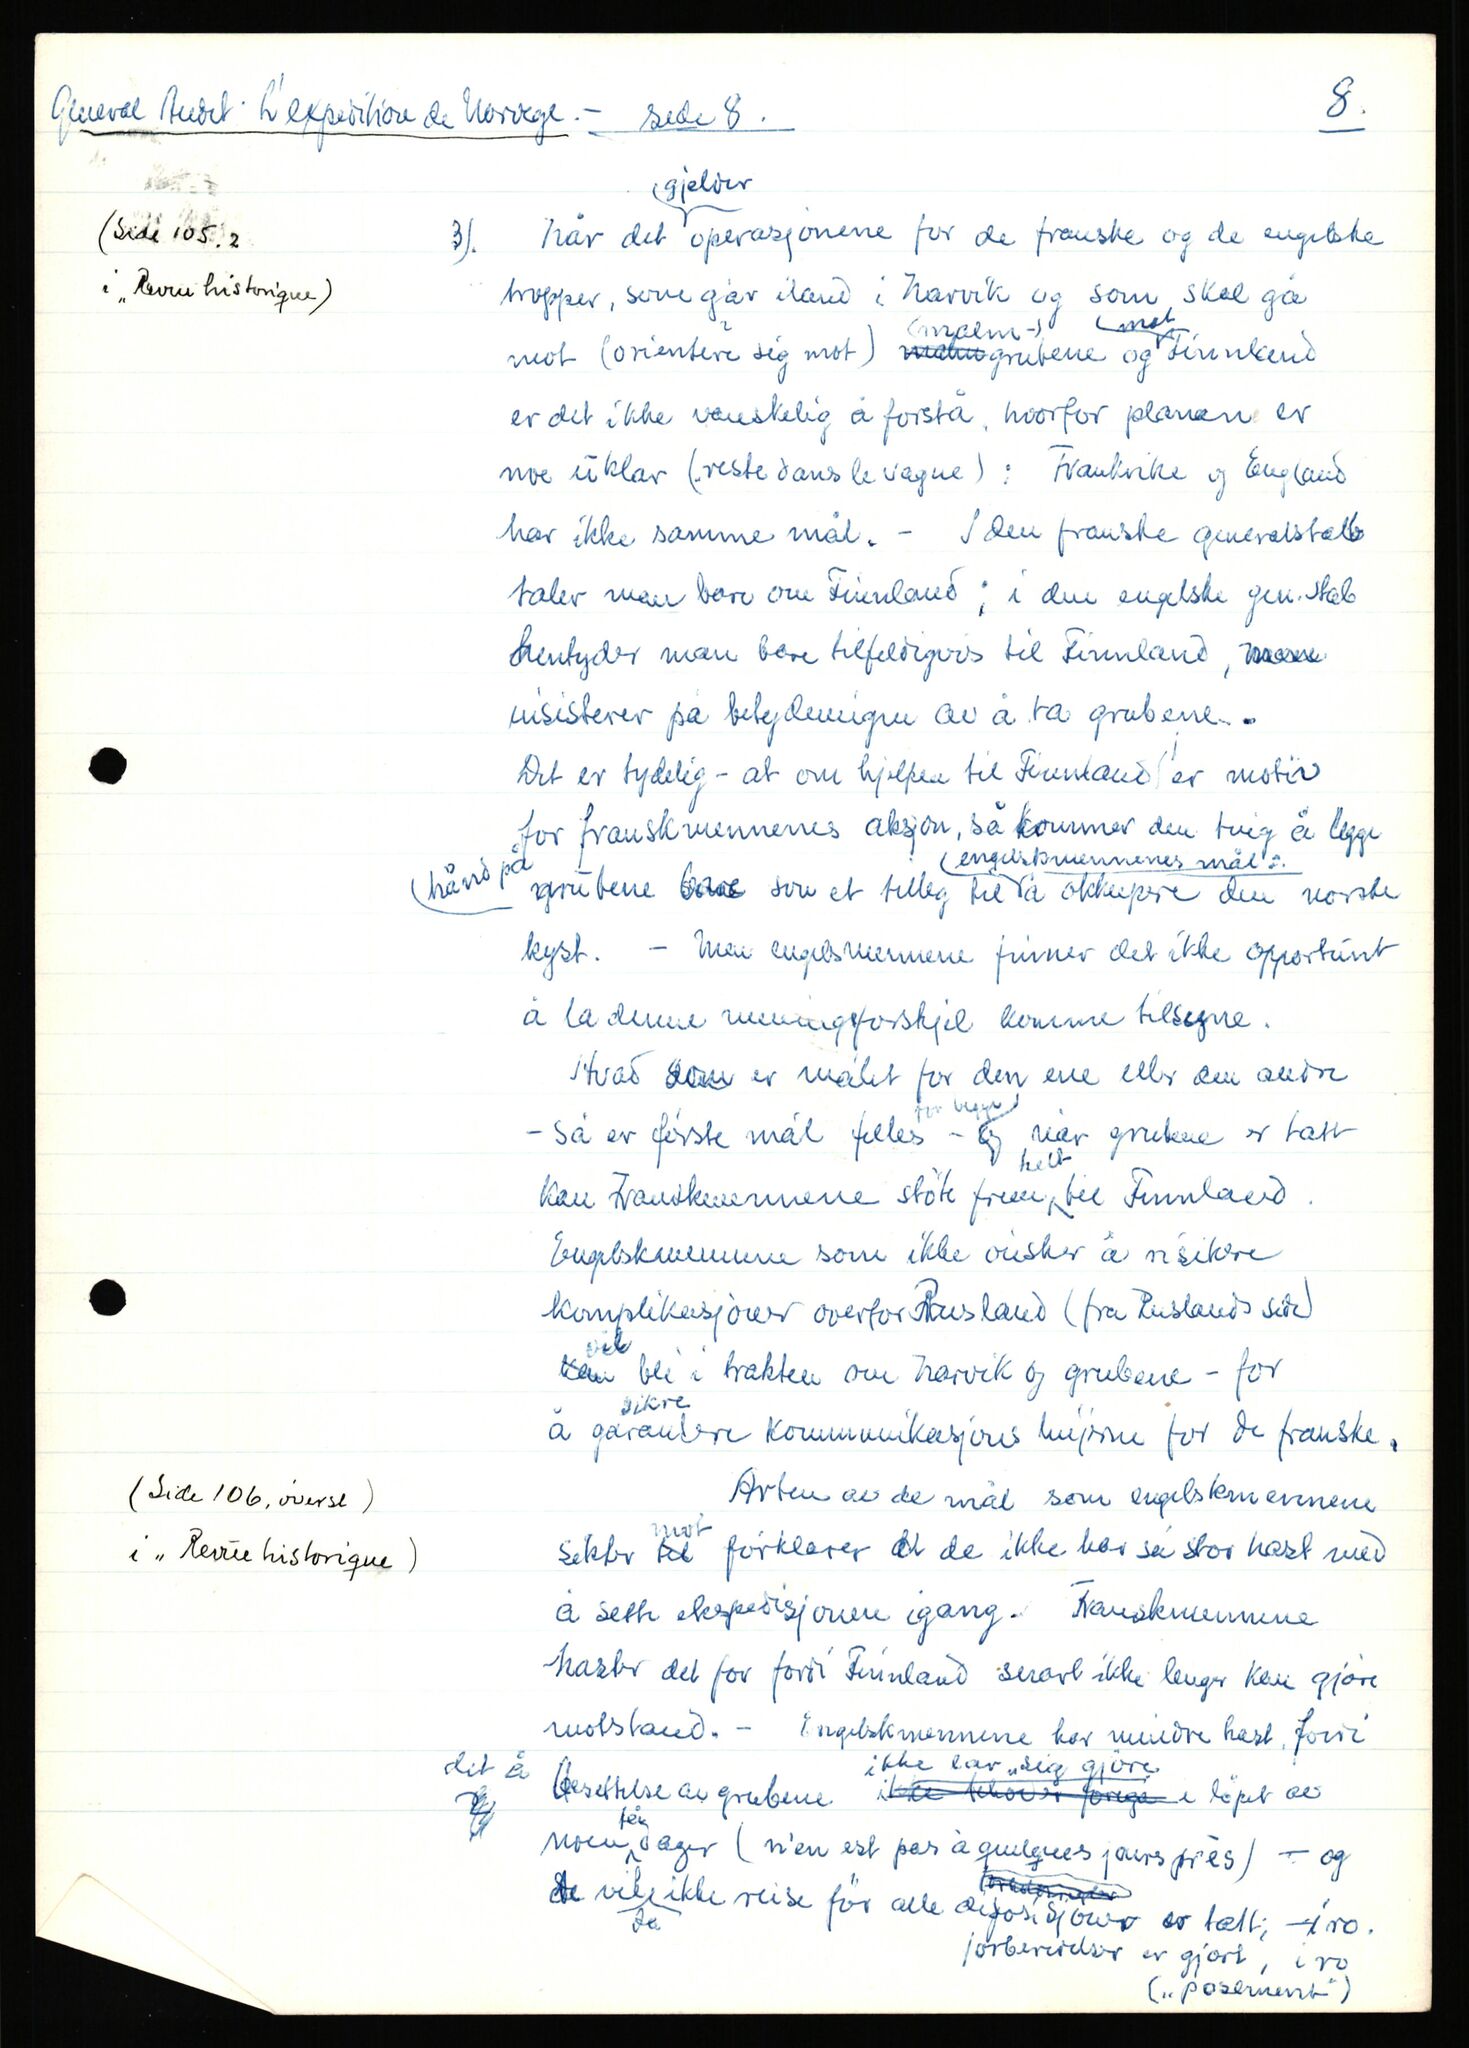 General Audet: L'expedition de Norvege. - side 8.
8.
(Side 105.2
i „Revue historique)
3). Når det gjelder operasjonene for de franske og de engelske
tropper, som går iland i Narvik og som skal gå
mot (orientere sig mot) (malm-) grubene og mot Finnland
er det ikke vanskelig å forstå, hvorfor planen er
noe uklar (reste dans le vague): Frankrike og England
har ikke samme mål. - I den franske generalstab
taler man bare om Finnland; i den engelske gen.stab
hentyder man bare tilfeldigvis til Finnland, men
insisterer på betydningen av å ta grubene.
Det er tydelig - at om hjelpen til Finnland er motiv
for franskmennenes aksjon, så kommer den ting å legge
hånd på grubene bare som et tillegg til engelskmennenes mål: å okkupere den norske
kyst. - Men engelsmennene finner det ikke opportunt
å la denne meningsforskjel komme tilsyne.
Hvad som er målet for den ene eller den andre
- så er første mål felles for begge - og når grubene er tatt
kan Franskmennene støte frem helt til Finnland.
Engelskmennene som ikke ønsker å risikere
komplikasjoner overfor Russland (fra Ruslands side)
kan vil bli i trakten om Narvik og grubene - for
å garantere sikre kommunikasjons linjerne for de franske.
(Side 106, øverst)
i „Revue historique)
Arten av de mål som engelskmennene
sikter til mot forklarer at de ikke har så stor hast med
å sette ekspedisjonen igang. Franskmennene
haster det for fordi Finnland snart ikke lenger kan gjøre
motstand. - Engelskmennene har mindre hast, fordi
det å besettelse av grubene ikke behøver foregå ikke lar „sig gjøre i løpet av
noen få dager (n'en est pas à quelques jours près) - og
de vil de ikke reise før alle disposisjoner er tatt; - i ro.
forberedelser er gjort, i ro
(„posement")